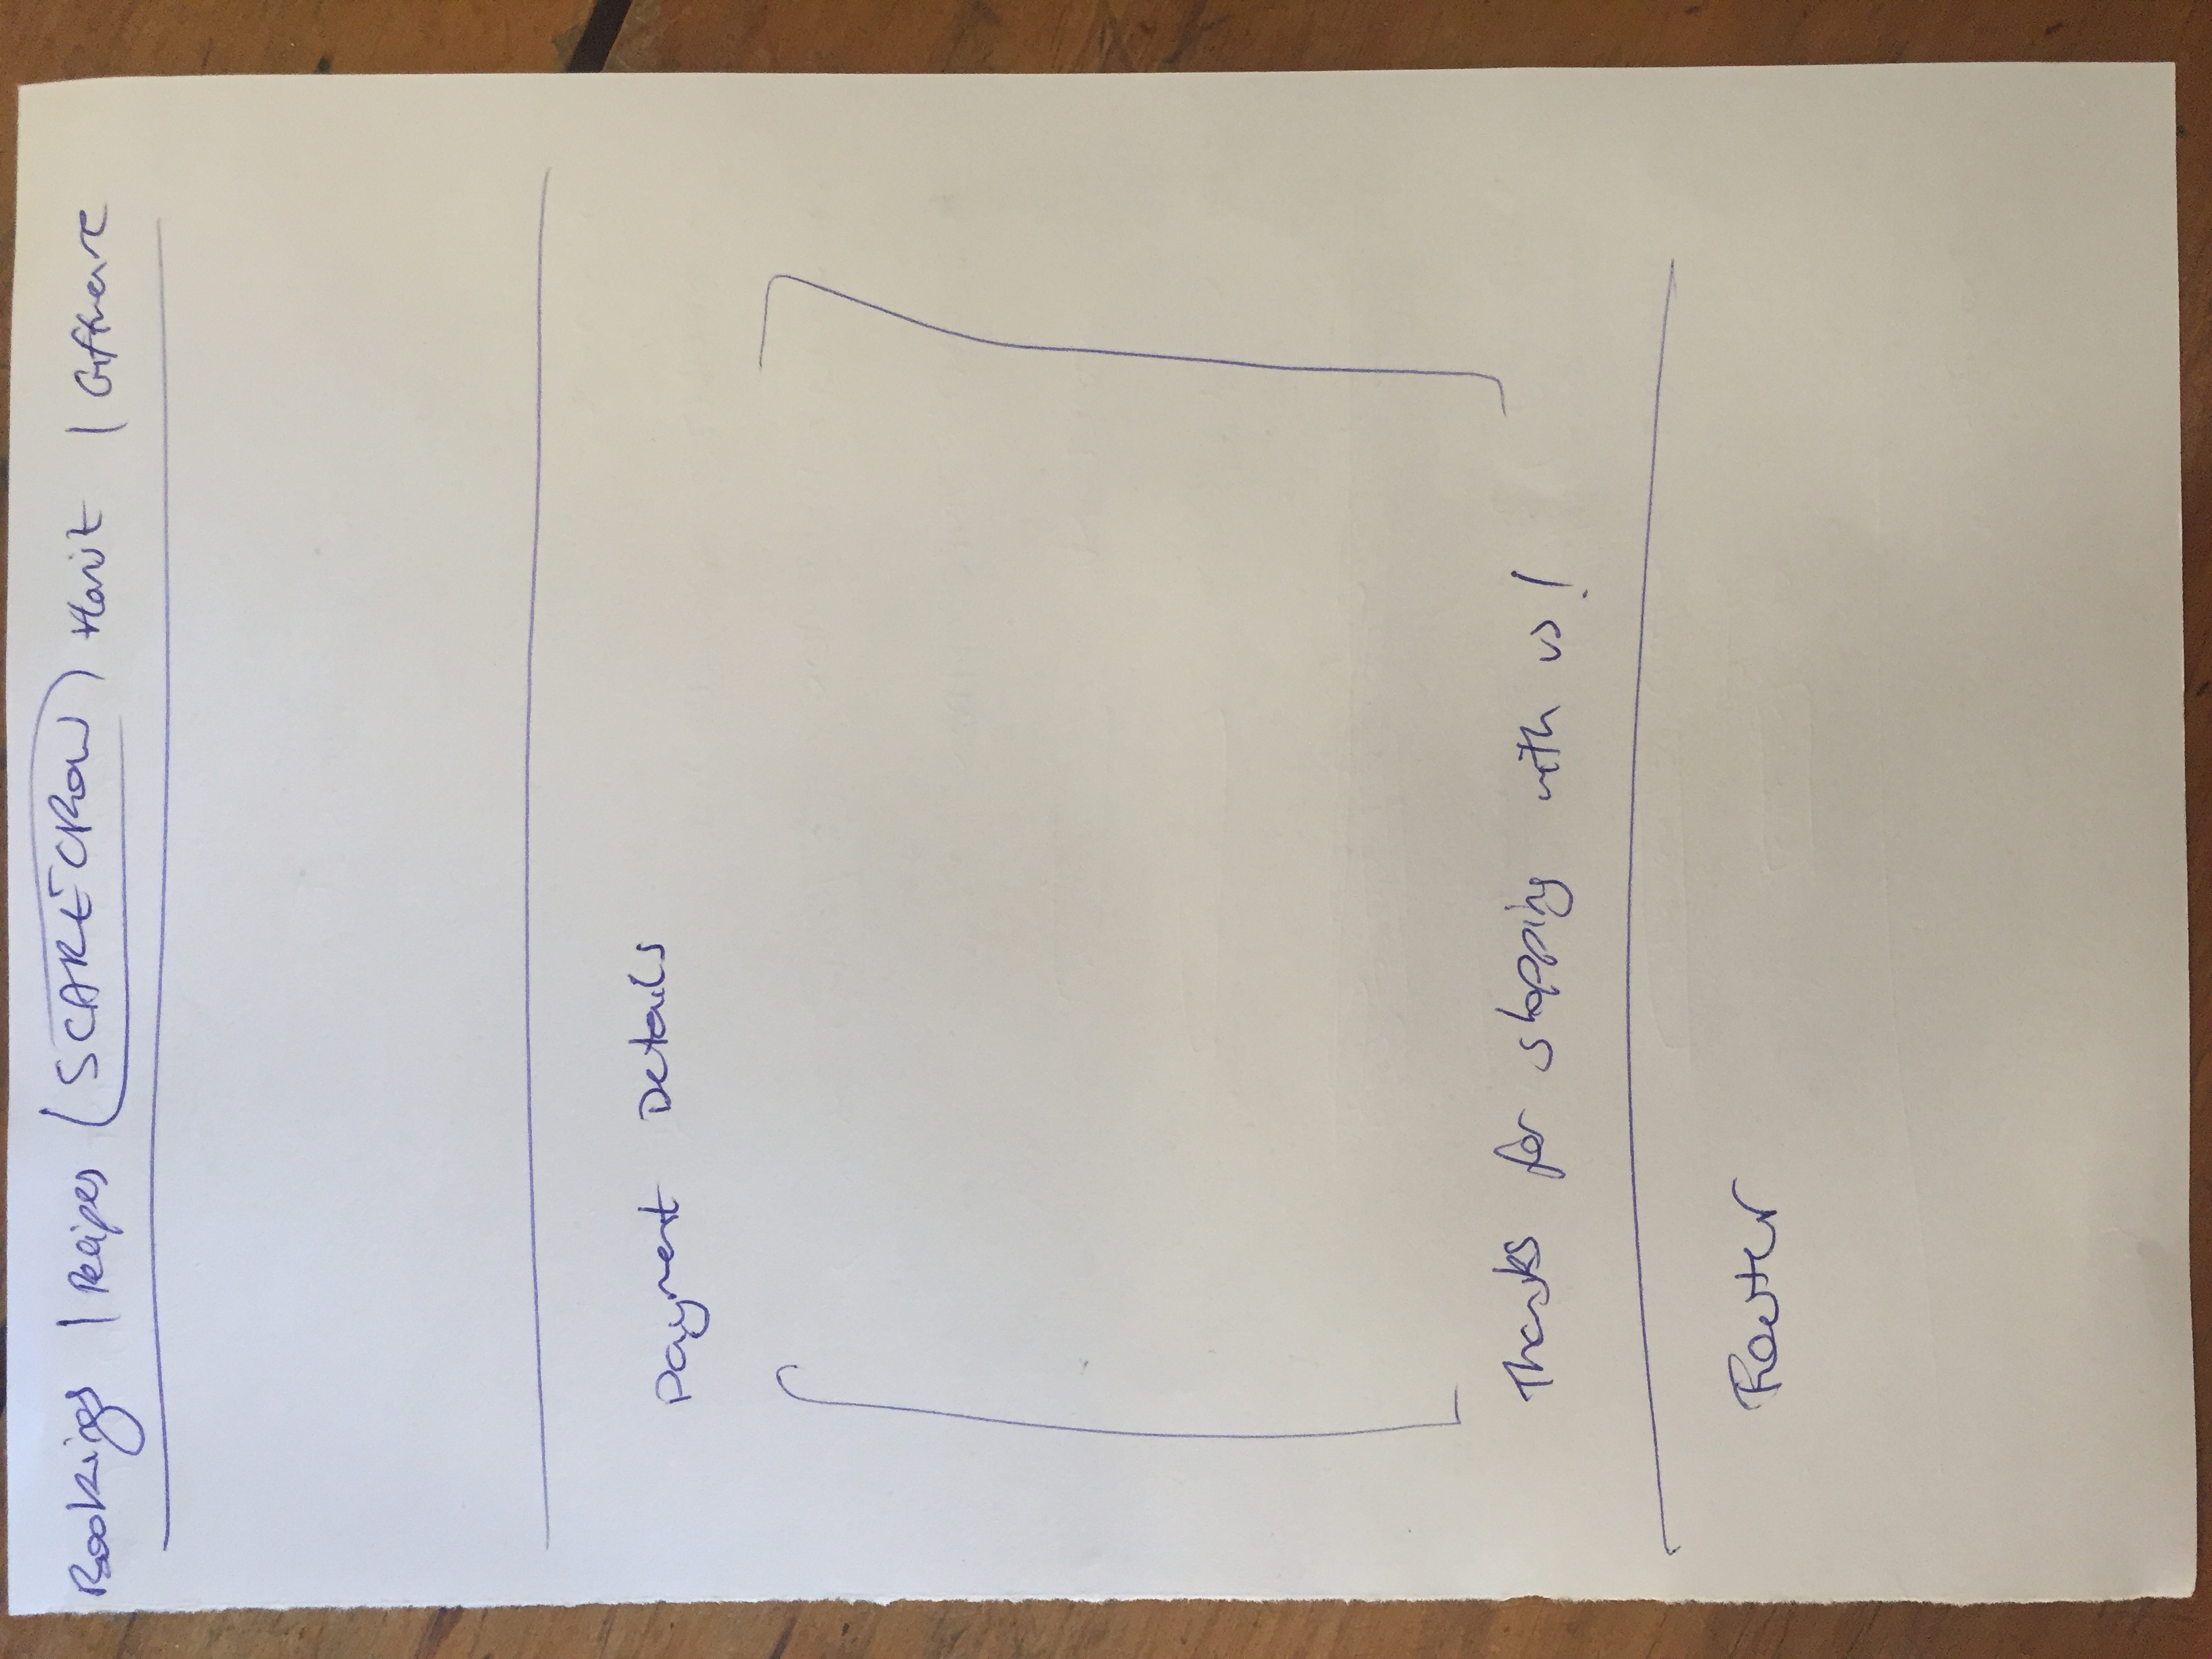 Bookings | Recipes (SCARECROW) Florist | Giftware
Payment Details
Thanks for shopping with us!
Footer